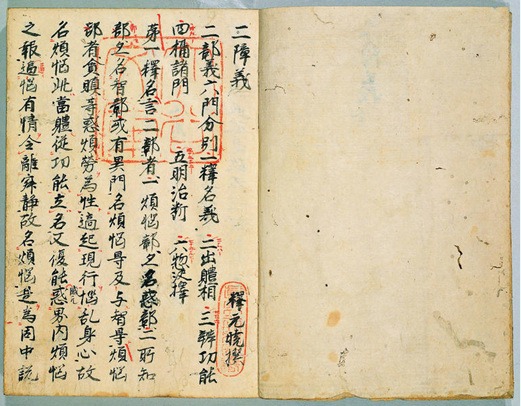 二障義 釋元曉撰
二障義六門分別 一釋名義 二出體相 三辨功能
四攝諸門 五明治断 六惣決擇
第一釋名言二障者一煩惱障亦名惑障二所知
障亦名智障或有異門名煩惱㝵及与智㝵煩惱
障者貪瞋等惑煩勞為性適起現行惱乱身心故
名煩惱此當體從功能立名又復能惑界内煩惱
之報逼惱有情令離寂静故名煩惱是為因中說